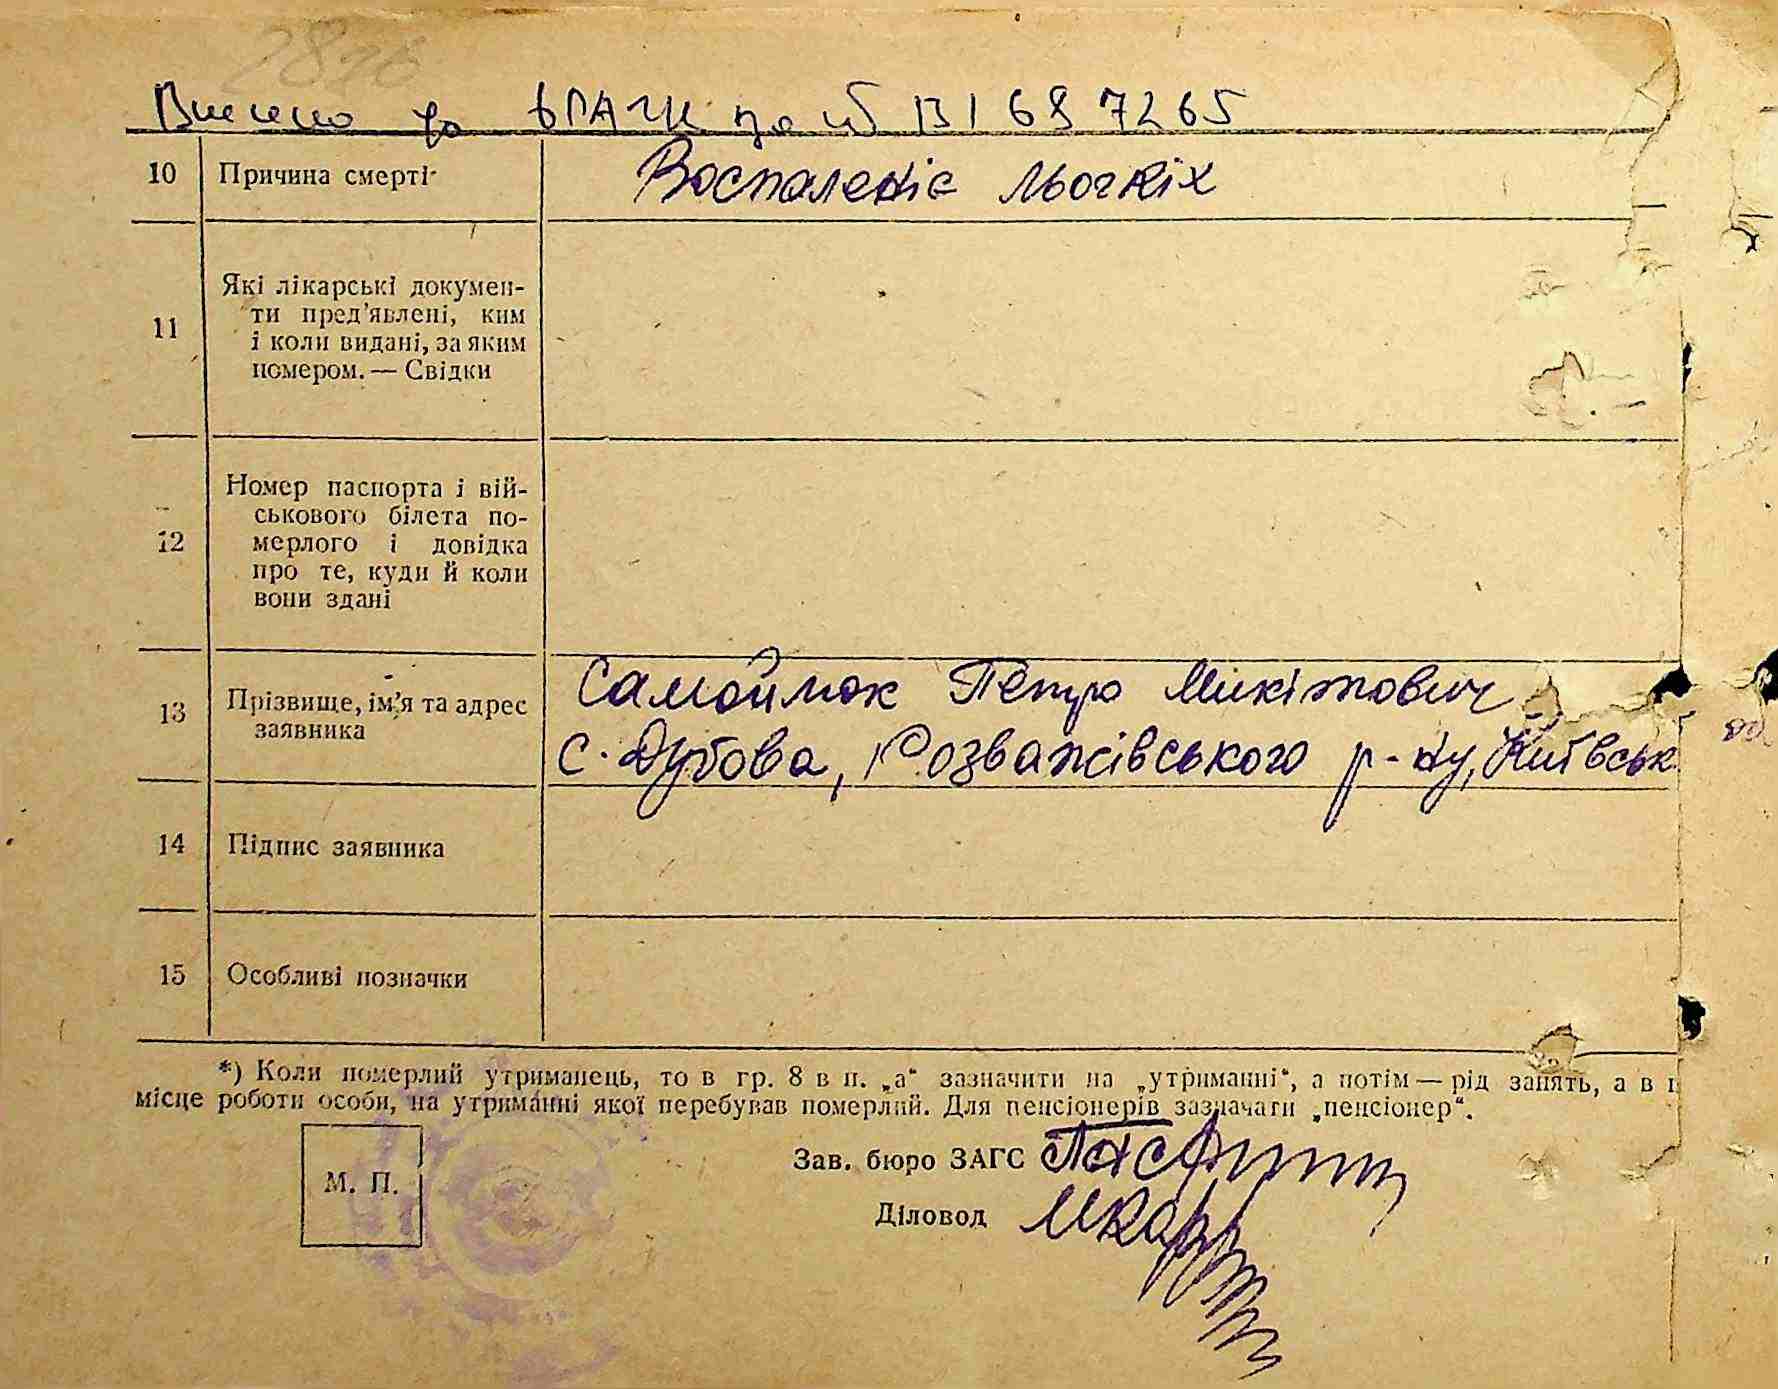 2876
Внесено до вРАЦС по иб ВІ 6897265
10 Причина смерті Воспаленіє льогкіх
11 Які лікарські докумен-
ти пред'явлені, ким
і коли видані, за яким
номером. — Свідки
12 Номер паспорта і вій-
ськового білета по-
мерлого і довідка
про те, куди й коли
вони здані
13 Прізвище, ім'я та адрес
заявника
Самойлюк Петро Микітович
с. Дубова, Розважівського р-ну, Київськ
14 Підпис заявника
15 Особливі позначки
*) Коли померлий утриманець, то в гр. 8 в п. „а“ зазначити на „утриманні“, а потім — рід занять, а в п
місце роботи особи, на утриманні якої перебував померлий. Для пенсіонерів зазначати „пенсіонер“.
М. П.
Зав. бюро ЗАГС
Діловод